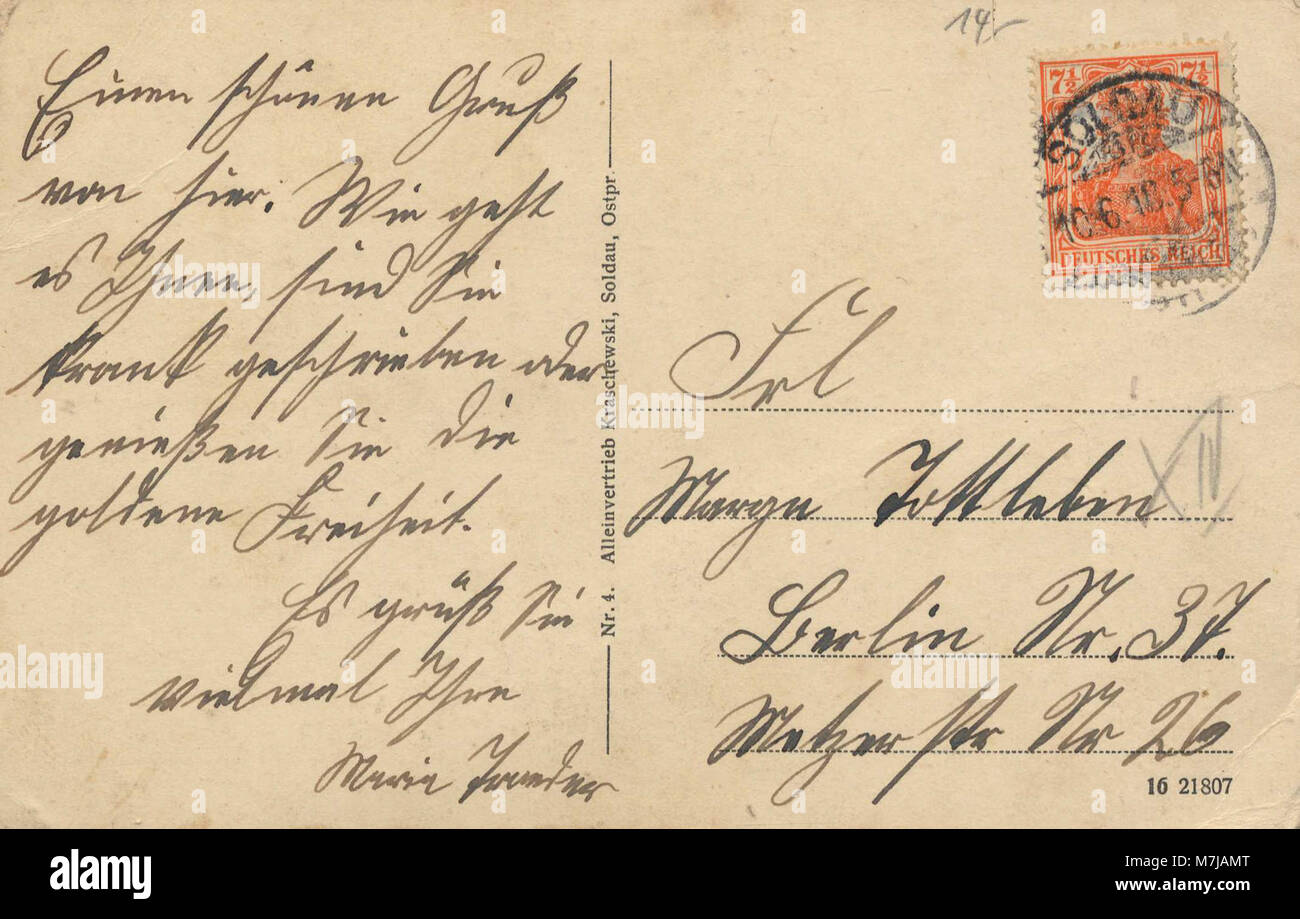 Einen schönen Gruß
von hier. Wie geht
es Ihnen, sind Sie
krank geschrieben oder
genießen Sie die
goldene Freiheit.
Es grüßt Sie
vielmal Ihre
Maria
Nr. 4. Alleinvertrieb Kraschewski, Soldau, Ostpr.
14
7½ 7½
SOLDAU
10.6.18.5
DEUTSCHES REICH
Frl
Marga Tottleben
Berlin Nr. 37.
Metzerstr Nr 26
16 21807
alamy
alamy
Image ID: M7JAMT
www.alamy.com